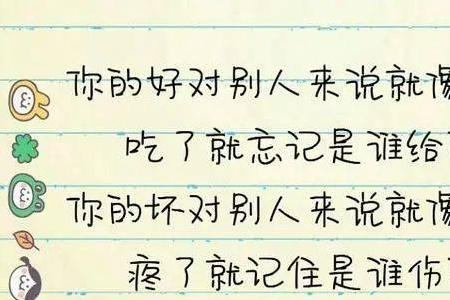 你的好对别人来说就像
吃了就忘记是谁给
你的坏对别人来说就像
疼了就记住是谁伤